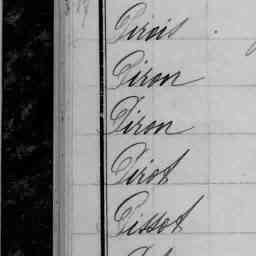 Pirois
Piron
Piron
Pirot
Pissot